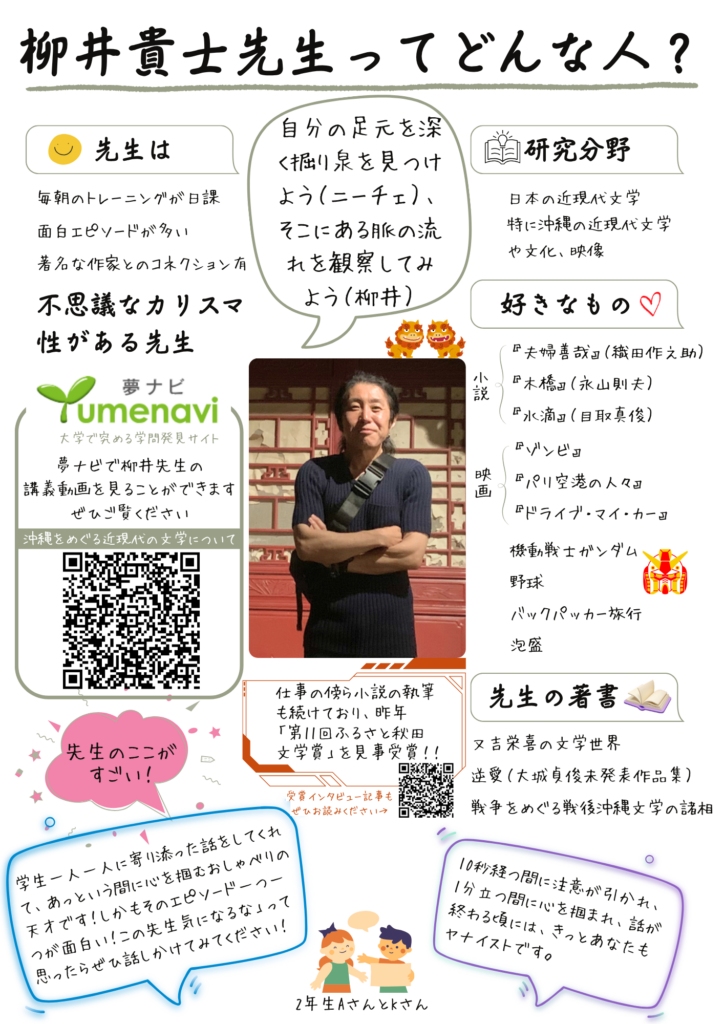 柳井貴士先生ってどんな人？
先生は
毎朝のトレーニングが日課
面白エピソードが多い
著名な作家とのコネクション有
不思議なカリスマ
性がある先生
自分の足元を深
く掘り泉を見つけ
よう(ニーチェ)、
そこにある脈の流
れを観察してみ
よう(柳井)
研究分野
日本の近現代文学
特に沖縄の近現代文学
や文化、映像
好きなもの
小説
『夫婦善哉』(織田作之助)
『木橋』(永山則夫)
『水滴』(目取真俊)
映画
『ゾンビ』
『パリ空港の人々』
『ドライブ・マイ・カー』
機動戦士ガンダム
野球
バックパッカー旅行
泡盛
夢ナビ
Yumenavi
大学で究める学問発見サイト
夢ナビで柳井先生の
講義動画を見ることができます
ぜひご覧ください
沖縄をめぐる近現代の文学について
仕事の傍ら小説の執筆
も続けており、昨年
「第11回ふるさと秋田
文学賞」を見事受賞！！
受賞インタビュー記事も
ぜひお読みください→
先生の著書
又吉栄喜の文学世界
逆愛(大城貞俊未発表作品集)
戦争をめぐる戦後沖縄文学の諸相
先生のここが
すごい！
学生一人一人に寄り添った話をしてくれ
て、あっという間に心を掴むおしゃべりの
天才です！しかもそのエピソード一つ一
つが面白い！この先生気になるな」って
思ったらぜひ話しかけてみてください！
10秒経つ間に注意が引かれ、
1分立つ間に心を掴まれ、話が
終わる頃には、きっとあなたも
ヤナイストです。
2年生AさんとKさん